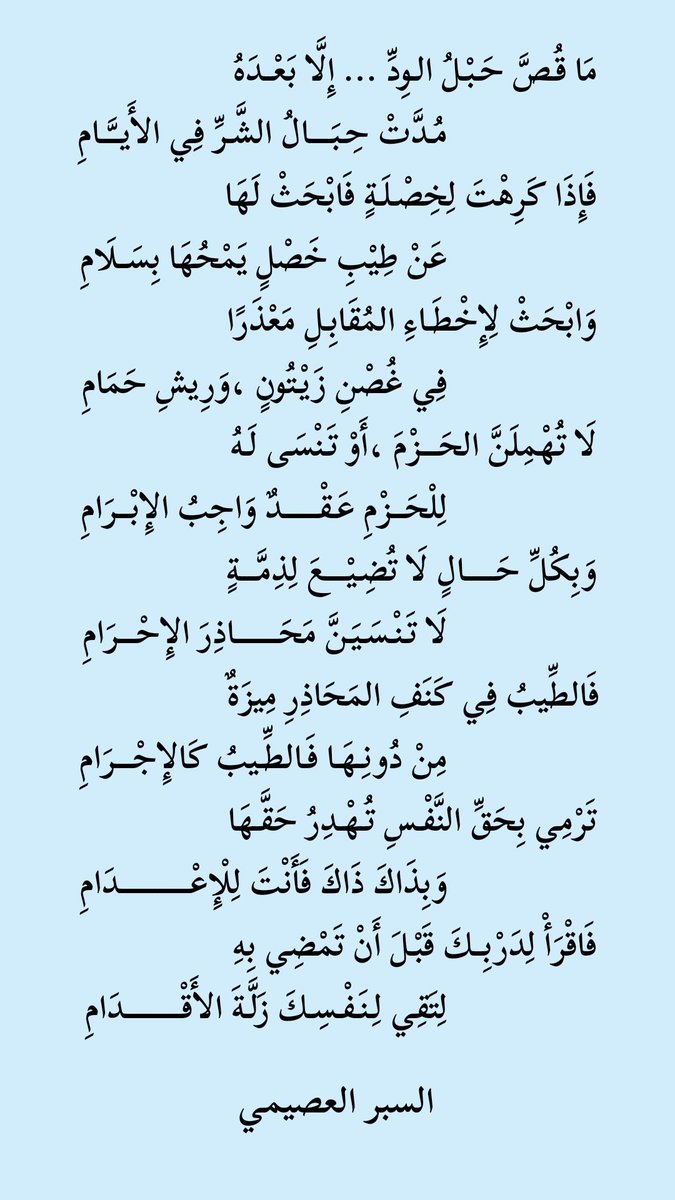 مَا قُصَّ حَبْلُ الوِدِّ ... إِلَّا بَعْدَهُ
مُدَّتْ حِبَـــالُ الشَّرِّ فِي الأَيَّـــامِ
فَإِذَا كَرِهْتَ لِخِصْلَةٍ فَابْحَثْ لَهَا
عَنْ طِيْبِ خَصْلٍ يَمْحُهَا بِسَـلَامِ
وَابْحَثْ لِإِخْطَاءِ المُقَابِلِ مَعْذَرًا
فِي غُصْنِ زَيْتُونٍ ،وَرِيشِ حَمَامِ
لَا تُهْمِلَنَّ الحَـــزْمَ ،أَوْ تَنْسَى لَهُ
لِلْحَــزْمِ عَقْـــــدٌ وَاجِبُ الإِبْــرَامِ
وَبِكُلِّ حَـــــالٍ لَا تُضِيْـــعَ لِذِمَّـــةٍ
لَا تَنْسَيَنَّ مَحَـــــــاذِرَ الإِحْـــرَامِ
فَالطِّيبُ فِي كَنَفِ المَحَاذِرِ مِيزَةٌ
مِنْ دُونِـهَـا فَالطِّـيبُ كَالإِجْـــرَامِ
تَرْمِي بِحَقِّ النَّفْسِ تُهْدِرُ حَقَّهَا
وَبِذَاكَ ذَاكَ فَأَنْتَ لِلْإِعْـــــــــدَامِ
فَاقْرَأْ لِدَرْبِـكَ قَبْلَ أَنْ تَمْضِي بِهِ
لِتَقِي لِنَفْسِكَ زَلَّةَ الأَقْـــــــــدَامِ
السبر العصيمي